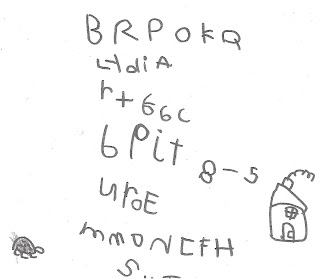 BRPOKQ
LYdiA
r+66c
6Pit
8-5
uroE
mmONEFH